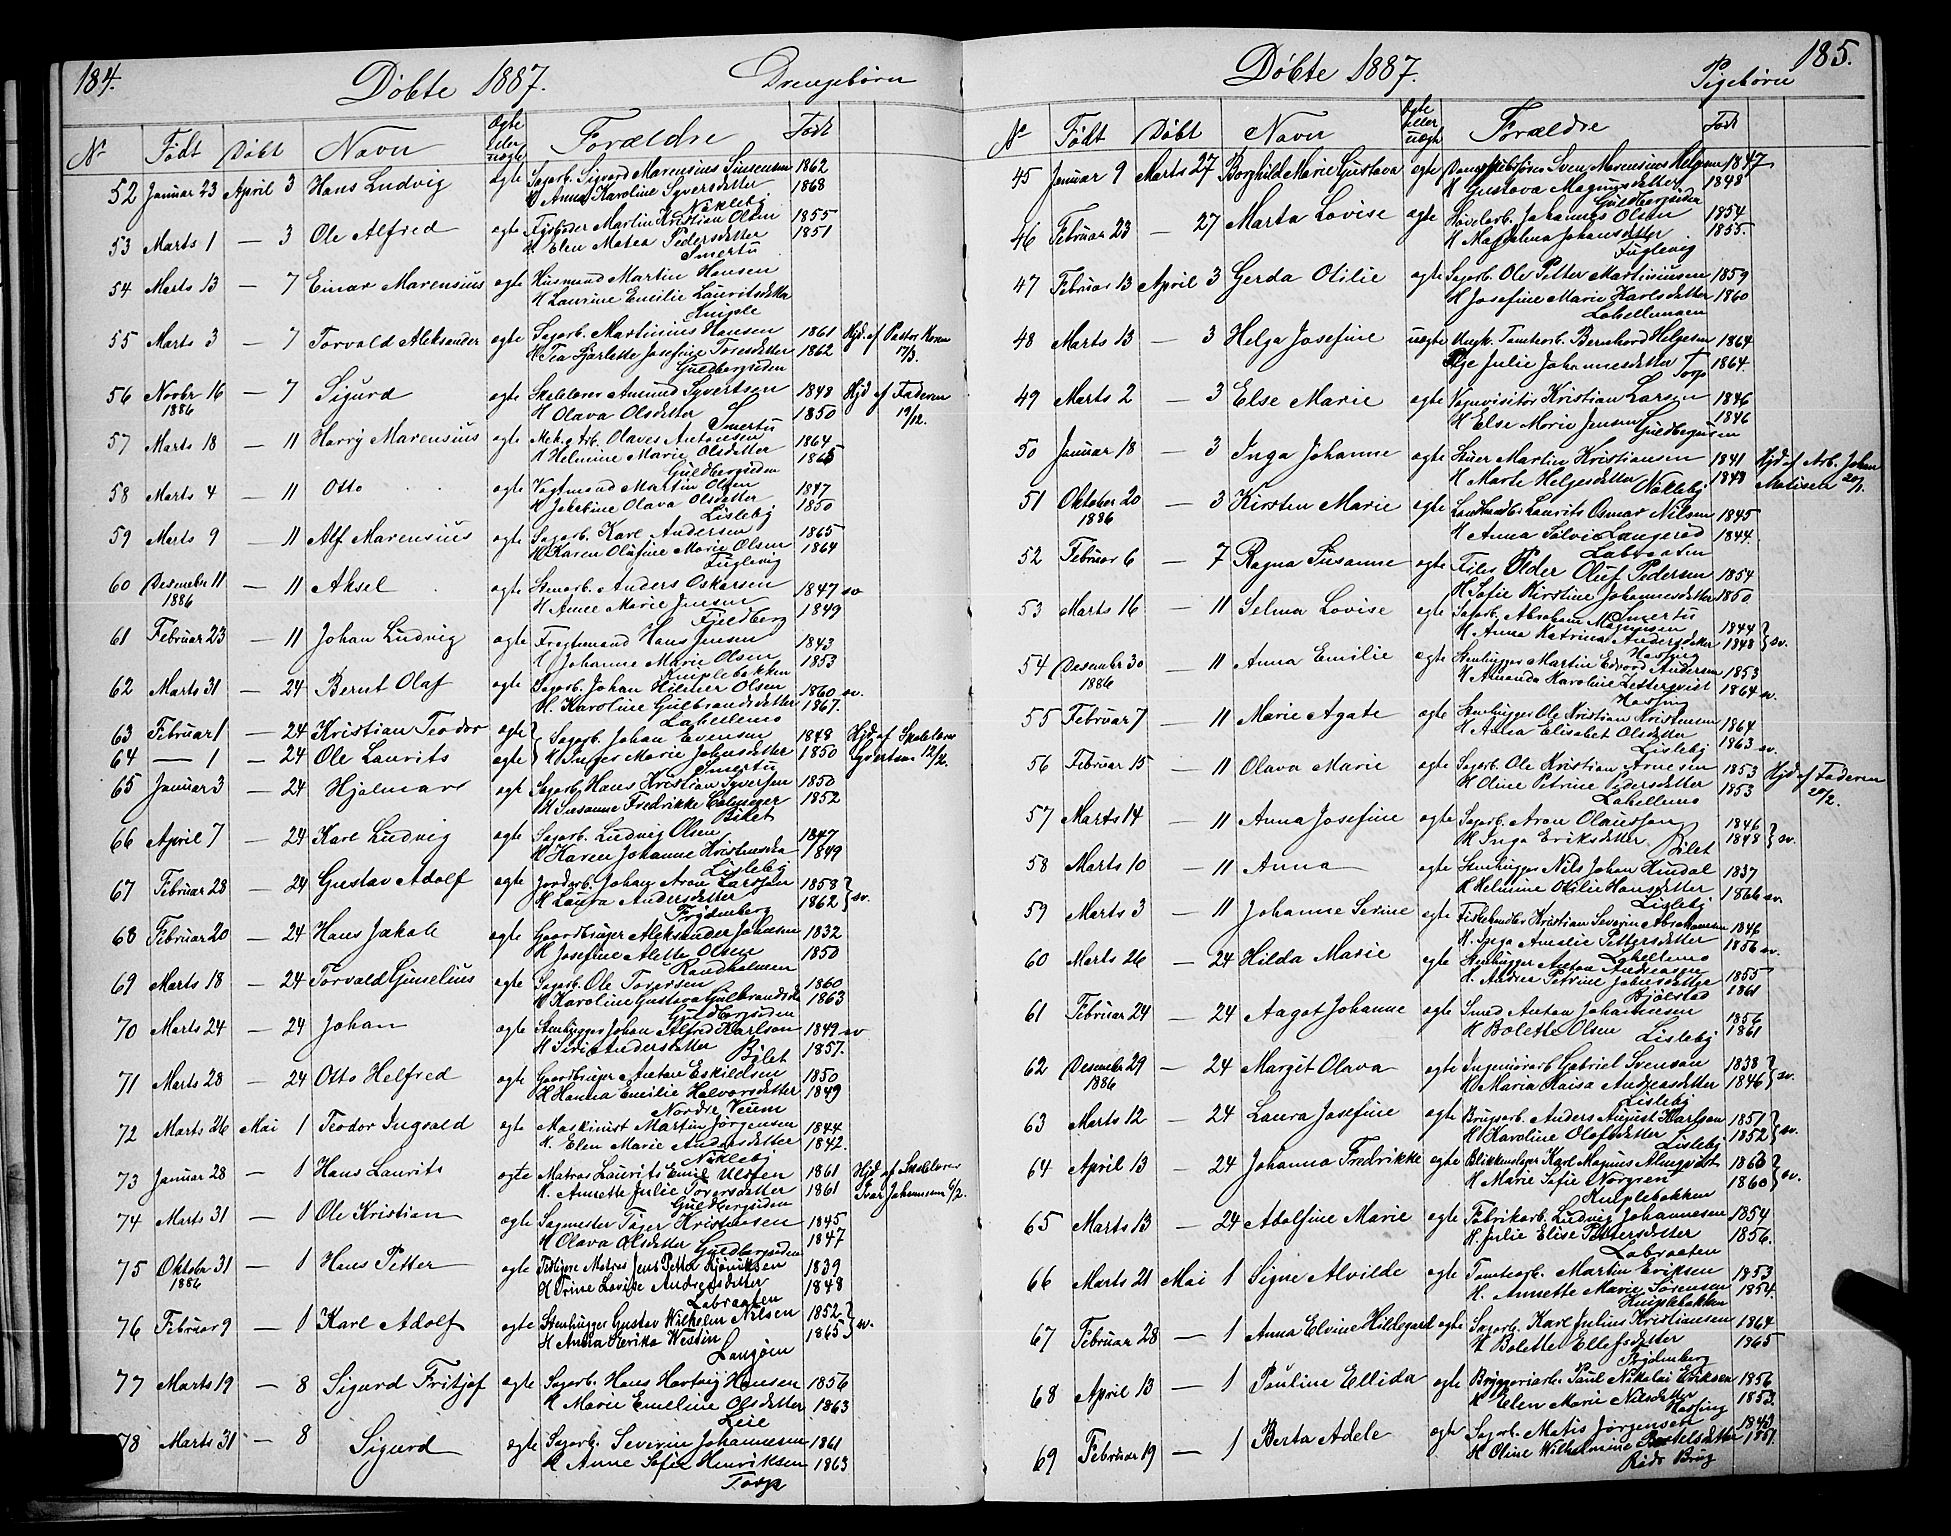 184.
Döbte 1887.
Drengebörn
No
Födt
Döbt
Navn
Ægte eller uægte
Forældre
Födt
52 Januar 23 April 3 Hans Ludvig ægte Sagarb. Sigvard Marensius 1862
H Anna Karoline Syversdetter 1868
Nökleby
53 Marts 1 — 3 Ole Alfred ægte Martin Kristian Olsen 1855
H. Elen Matea Pedersdetter 1851
Smertu
54 Marts 13 — 7 Einar Marensius ægte Husmand Martin Hansen
H Laurine Emilie Lauritsdetter
Kniple
55 Marts 3 — 7 Torvald Aleksander ægte Sagarb. Martinius Hansen 1861 Hjd. af Pastor Koren
H Tea Josefine Toresdetter 1862 17/3.
Guldbergsiden
56 Novbr 16 — 7 Sigurd ægte Skolelærer Amund Syvertsen 1848 Hjd af Faderen
1886 H Olava Olsdetter 1850 19/12.
Smertu
57 Marts 18 — 11 Harry Marensius ægte Mek. Arb. Olaves Antonsen 1864
H Helmine Marie Olsdetter 1865
Guldbergsiden
58 Marts 4 — 11 Otto ægte Vagtmand Martin Olsen 1847
H Jakobine Olava Olsdetter 1850
Lisleby
59 Marts 9 — 11 Alf Marensius ægte Sagarb. Karl Andersen 1865
H Karen Olufine Marie Olsen 1864
Fuglevig
60 Desember 11 — 11 Aksel ægte Stenarb. Anders Oskarsen 1847 sv
1886 H Anne Marie Jensen 1849
Fjeldberg
61 Februar 23 — 11 Johan Ludvig ægte Fragtemand Hans Jensen 1843
H Johanne Marie Olsen 1853
Kniplebakken
62 Marts 31 — 24 Bernt Olaf ægte Sagarb. Johan Hilmer Olsen 1860 sv.
H. Karoline Gulbrandsdetter 1867.
Labellemo
63 Februar 1 — 24 Kristian Teodor ægte Sagarb. Johan Evensen 1848 Hjd. af Skolelærer
64 — 1 — 24 Ole Laurits ægte H Inger Marie Johnsdetter 1850 Syvertsen 12/2.
Smertu
65 Januar 3 — 24 Hjalmar ægte Sagarb. Hans Kristian Syversen 1850
H Susanne Fredrikke 1852
Bilet
66 April 7 — 24 Karl Ludvig ægte Sagarb. Ludvig Olsen 1847
H Karen Johanne 1849
Lisleby
67 Februar 28 — 24 Gustav Adolf ægte Jordarb. Johan Aron Larsson 1858
H Laura Andersdetter 1862 } sv.
Frydenberg
68 Februar 20 — 24 Hans Jakob ægte Gaardbruger Aleksander Johansen 1832
H Josefine Alette Olsen 1850
Randholmen
69 Marts 18 — 24 Torvald Gunelius ægte Sagarb. Ole Toversen 1860
H Karoline Gustava 1863
Guldbergsiden
70 Marts 24 — 24 Johan ægte Stenhugger Johan Alfred Karlson 1849 sv
H Siri Andersdetter 1857.
Bilet
71 Marts 28 — 24 Otto Helfred ægte Gaardbruger Anton Eskildsen 1850
H Hanna Emilie Halvorsdetter 1849
Nordre Veum
72 Marts 26 Mai 1 Teodor Ingvald ægte Maskinist Martin Jörgensen 1844
H. Elen Marie Andersdetter 1842.
Nökleby
73 Januar 28 — 1 Hans Laurits ægte Matros Laurits Emil Ulsfen 1861 Hjd. af Skolelærer
H. Annette Julie Toversdetter 1861 Ivar Johannesen 6/2.
Guldbergsiden
74 Marts 31 — 1 Ole Kristian ægte Sagmester Töger Kristiansen 1845
H Olava Olsdetter 1847
Guldbergsiden
75 Oktober 31 — 1 Hans Petter ægte Matros Jens Petter 1839
1886 H Trine Lovise Andreasdetter 1848
Labraaten
76 Februar 9 — 1 Karl Adolf ægte Stenhugger Gustav Wilhelm Nilsen 1852
H Anna Erika Westin 1865 } sv.
Langöen
77 Marts 19 — 8 Sigurd Fritjof ægte Sagarb. Hans Hartvig Hansen 1856
H Marie Emeline Olsdetter 1863
Leie
78 Marts 31 — 8 Sigurd ægte Sagarb. Severin Johannesen 1861
H Anne Sofie Henriksen 1863
Torp
185.
Döbte 1887.
Pigebörn
No
Födt
Döbt
Navn
Ægte eller uægte
Forældre
Födt
45 Januar 9 Marts 27 Borghild Marie Gustava ægte Sven Marensius Helgesen 1847
H Gustava Magnusdetter 1848
Guldbergsiden
46 Februar 23 — 27 Marta Lovise ægte Hövelarb. Johannes Olsen 1854
H Magdalena Johansdetter 1855.
Fuglevig
47 Februar 13 April 3 Gerda Otilie ægte Sagarb. Ole Petter Martiniusen 1859
H Josefine Marie Karlsdetter 1860
Labellemoen
48 Marts 13 — 3 Helga Josefine uægte Ungk. Tomtearb. Bernhard Helgesen 1864
Pige Julie Johannesdetter 1864.
Torp
49 Marts 2 — 3 Else Marie ægte Vognvisitör Kristian Larsen 1846
H Else Marie Jensen 1846
Guldbergsiden
50 Januar 18 — 3 Inga Johanne ægte Martin Kristiansen 1841 Hjd af Arb. Johan
H Marte Helgesdetter Nökleby 1848 Matisen 20/1.
51 Oktober 20 — 3 Kirsten Marie ægte Laurits Osmar Nilsen 1845
1886 H Anna Solvie Langeröd 1844.
Labraaten
52 Februar 6 — 7 Ragna Susanne ægte Oluf Pedersen 1854
H Sofie Kirstine Johannesdetter 1850
Smertu
53 Marts 16 — 11 Selma Lovise ægte Sagarb. Abraham Magnusen 1844
H Anna Katrina Andersdetter 1848 } sv.
Hassing
54 Desembr 30 — 11 Anna Emilie ægte Stenhugger Martin Edvard Andersen 1853
1886 H Amanda Karoline Zetterqvist 1864 sv.
Hassing
55 Februar 7 — 11 Marie Agate ægte Stenhugger Ole Kristian Kristensen 1864
H Anna Elisabet Olsdetter 1863 sv.
Lisleby
56 Februar 15 — 11 Olava Marie ægte Sagarb. Ole Kristian Arnesen 1853 Hjd af Faderen
H Oline Petrine Pedersdetter 1853 20/2.
Labellemo
57 Marts 14 — 11 Anna Josefine ægte Sagarb. Aron Olausson 1846
H Inga Eriksdetter 1848 } sv.
Bilet
58 Marts 10 — 11 Anna ægte Stenhugger Nils Johan Hindal 1837
H Helmine Otilie Hansdetter 1866 sv.
Lisleby
59 Marts 3 — 11 Johanne Serine ægte Fiskehandler Kristian Severin Abrahamsen 1846
H. Inga Amalie Pettersdetter 1856 sv.
Labellemo
60 Marts 26 — 24 Hilda Marie ægte Stenhugger Anton Andreasen 1855
H. Andrea Petrine Johnsdetter 1861
Bjölstad
61 Februar 24 — 24 Aagot Johanne ægte Smed Anton Johannesen 1856
H Bolette Olsen 1861
Lisleby
62 Desember 29 — 24 Margit Olava ægte Gabriel Svenson 1838
1886 H Maria Kaisa Andreasdetter 1846 } sv.
Lisleby
63 Marts 12 — 24 Laura Josefine ægte Brugsarb. Anders August Karlson 1851
H Karoline Olofsdetter 1852 } sv.
Lisleby
64 April 13 — 24 Johanna Fredrikke ægte Blikkenslager Karl Magnus Almqvist 1860
H Marie Sofie Norgren 1860 } sv.
Kniplebakken
65 Marts 13 — 24 Adolfine Marie ægte Fabrikarb. Ludvig Johannesen 1854
H. Julie Elise Pettersdetter 1856.
Labraaten
66 Marts 21 Mai 1 Signe Alvilde ægte Tomtearb. Martin Eriksen 1853
H. Annette Marie Sörensen 1854.
Kniplebakken
67 Februar 28 — 1 Anna Elvine Hildegard ægte Sagarb. Karl Julius Kristiansen 1864
H Bolette Ellefsdetter 1865
Frydenberg
68 April 13 — 1 Pauline Ellida ægte Bryggeriarb. Paul Nikolai Eriksen 1856
H Elen Marie Nilsdetter 1853.
Hassing
69 Februar 19 — 1 Berta Adele ægte Sagarb. Matis Jörgensen 1849
H Oline Wilhelmine 1851.
Röds Brug